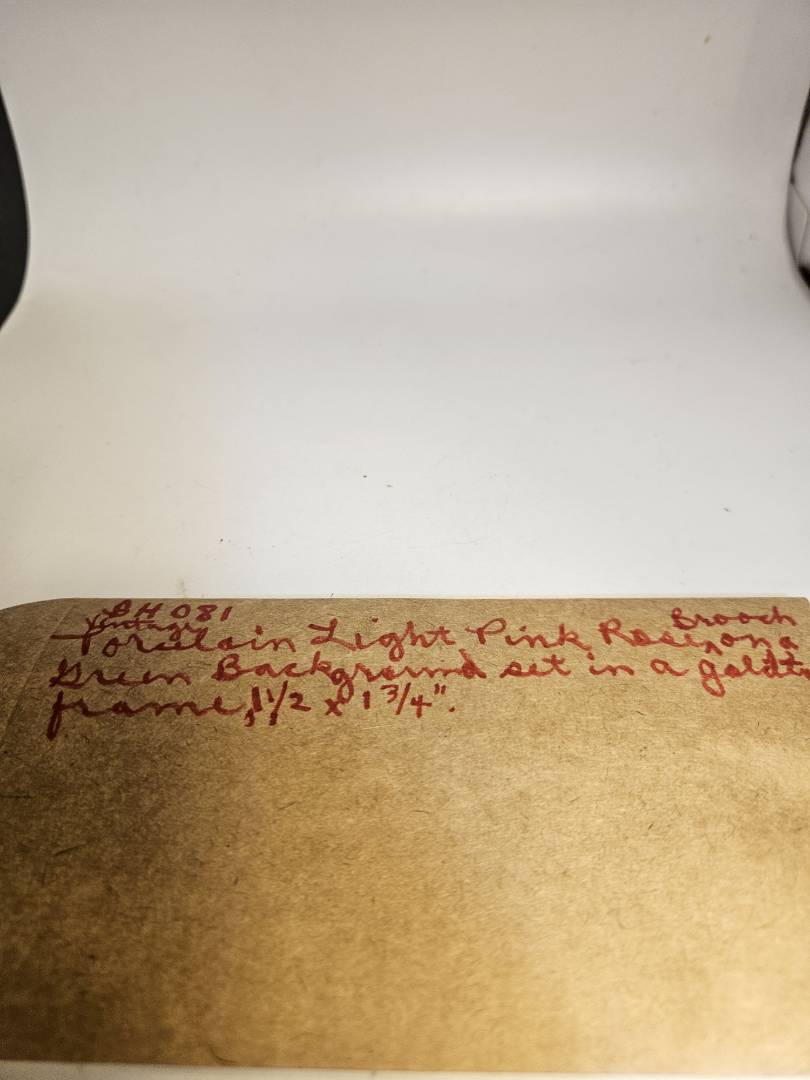 BH 081
Vintage Brooch
Porcelain Light Pink Rose, on a
Green Background set in a goldt
frame, 1 1/2 x 1 3/4".